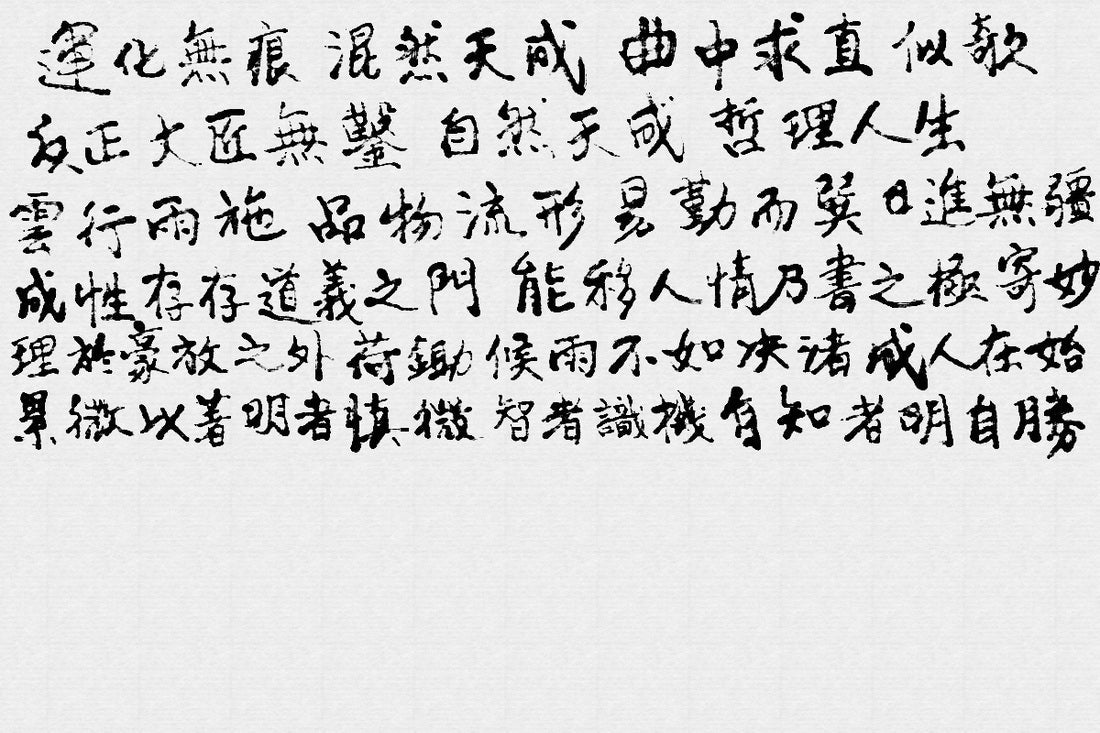 運化無痕 混然天成 曲中求直 似欹
反正大匠無鑿 自然天成 哲理人生
雲行雨施 品物流形 易勤而巽 日進無疆
成性存存道義之門 能移人情乃書之極寄妙
理於豪放之外 荷鋤候雨不如决渚 成人在始
累微以著明者慎微 智者識機自知者明自勝